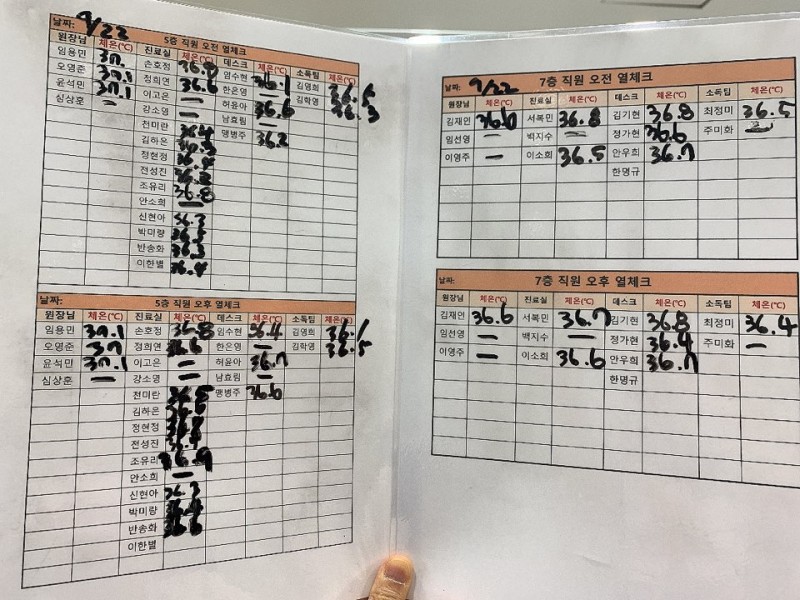 날짜: 9/22
5층 직원 오전 열체크
원장님 체온(℃) 진료실 체온(℃) 데스크 체온(℃) 소독팀 체온(℃)
임용민 37. 손호정 36.8 임수현 36.1 김영희 36.5
오영준 37.1 정희연 36.6 한은영 — 김학영 36.3
윤석민 37.1 이고은 — 허윤아 36.6
심상훈 — 강소영 — 남효림 —
천미란 36.4 맹병주 36.2
김하은
정현정
전성진
조유리 36.8
안소희 —
신현아 36.3
박미량 36.5
반송화 36.3
이한별 36.4
날짜:
5층 직원 오후 열체크
원장님 체온(℃) 진료실 체온(℃) 데스크 체온(℃) 소독팀 체온(℃)
임용민 37.1 손호정 36.8 임수현 36.4 김영희 36.1
오영준 37 정희연 36.6 한은영 — 김학영 36.5
윤석민 37.1 이고은 — 허윤아 36.7
심상훈 — 강소영 — 남효림 —
천미란 맹병주 36.6
김하은
정현정
전성진
조유리 36.9
안소희 —
신현아 36.3
박미량 36.4
반송화 36.6
이한별
날짜: 9/22
7층 직원 오전 열체크
원장님 체온(℃) 진료실 체온(℃) 데스크 체온(℃) 소독팀 체온(℃)
김재인 36.0 서복민 36.8 김기현 36.8 최정미 36.5
임선영 — 백지수 — 정가현 36.6 주미화 —
이영주 — 이소희 36.5 안우희 36.7
한명규
날짜:
7층 직원 오후 열체크
원장님 체온(℃) 진료실 체온(℃) 데스크 체온(℃) 소독팀 체온(℃)
김재인 36.6 서복민 36.7 김기현 36.8 최정미 36.4
임선영 — 백지수 — 정가현 36.4 주미화 —
이영주 — 이소희 36.6 안우희 36.7
한명규